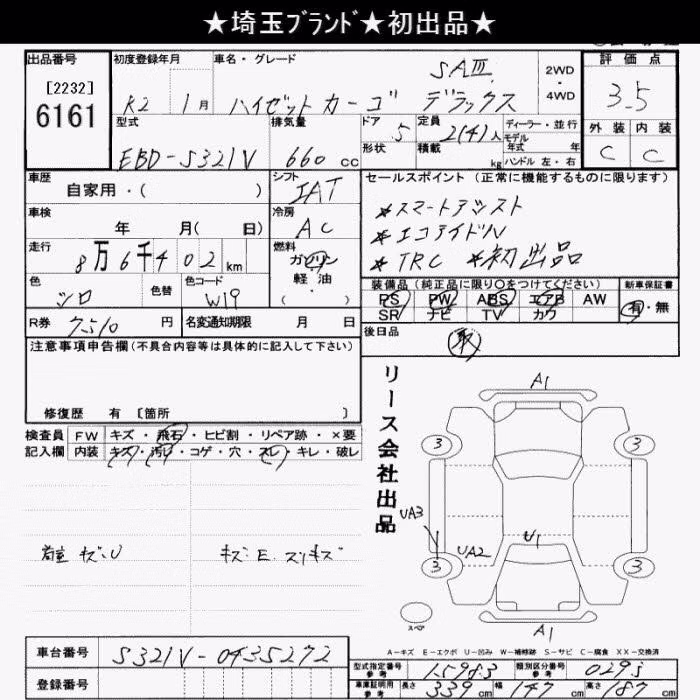 ★埼玉ﾌﾞﾗﾝﾄﾞ★初出品★
出品番号
[2232]
6161
初度登録年月
R2 1月
車名・グレード
SAⅢ
ハイゼットカーゴ デラックス
2WD・4WD
評価点
3.5
外装 内装
C C
型式
EBD-S321V
排気量
660 cc
ドア 5
形状
定員 2(4)人
積載 kg
ディーラー・並行
モデル年式 年
ハンドル 左・右
車歴
自家用・( )
シフト
IAT
車検
年 月( 日)
冷房
AC
走行
8万6千402 km
燃料
ガソリン
軽油
( )
色
シロ
色替
色コード
W19
R券 7510 円
名変通知期限 月 日
セールスポイント (正常に機能するものに限ります)
*スマートアシスト
*エコアイドル
*TRC *初出品
装備品 (純正品に限り○をつけてください)
PS PW ABS エアB AW
SR ナビ TV カワ
新車保証書
有・無
後日品
取
注意事項申告欄 (不具合内容等は具体的に記入して下さい)
修復歴 有 [箇所 ]
検査員記入欄
FW キズ・飛石・ヒビ割・リペア跡・×要
内装 キズ・汚レ・コゲ・穴・スレ・キレ・破レ
荷室 キズ・U
キズ E. スリキズ
リース会社出品
A1
3
3
UA3
3
UA2
U1
3
A1
スペア
A-キズ E-エクボ U-凹み W-補修跡 S-サビ C-腐食 XX-交換済
車台番号 S321V-0435272
登録番号
型式指定番号 参考 15983
類別区分番号 参考 0293
車庫証明用 参考 長さ 339 cm 幅 147 cm 高さ 187 cm